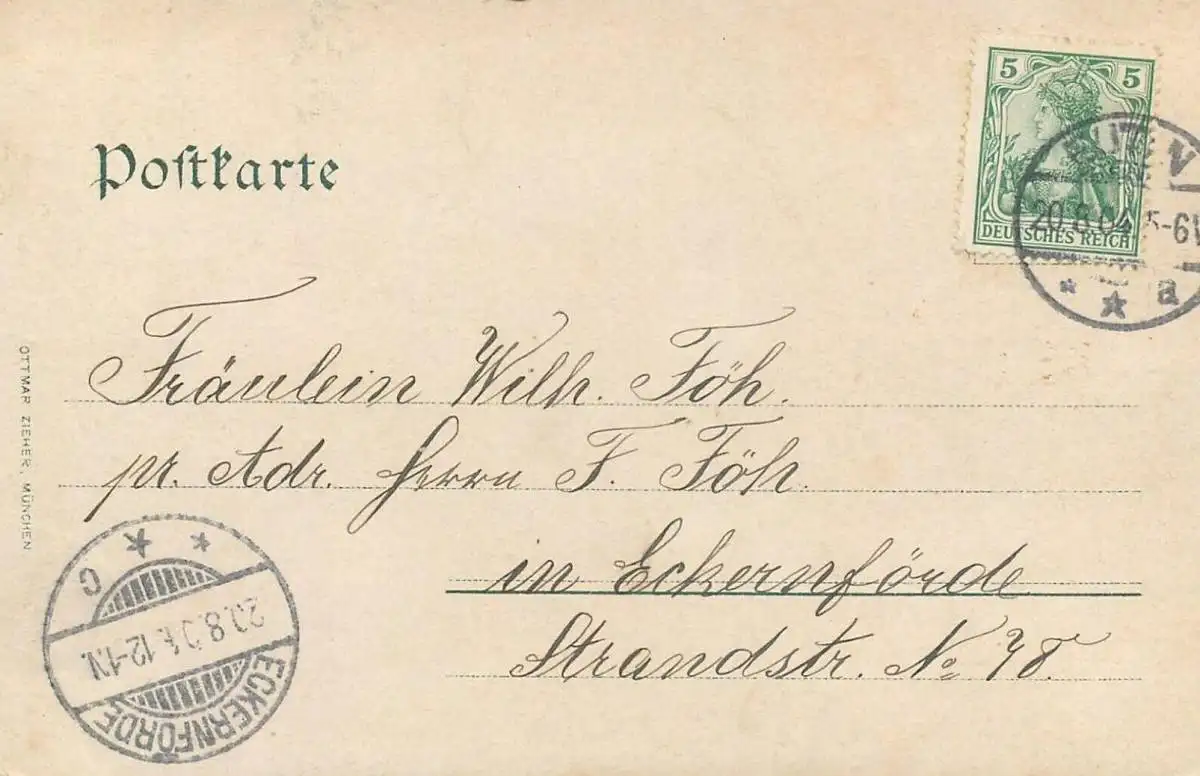 Postkarte
5 5
DEUTSCHES REICH
20.8.04 5-6V
a
Fräulein Wilh. Föh.
pr. Adr. Herrn F. Föh.
in Eckernförde
Strandstr. No 78.
OTTMAR ZIEHER, MÜNCHEN
C
20.8.04. 12-1N.
ECKERNFÖRDE